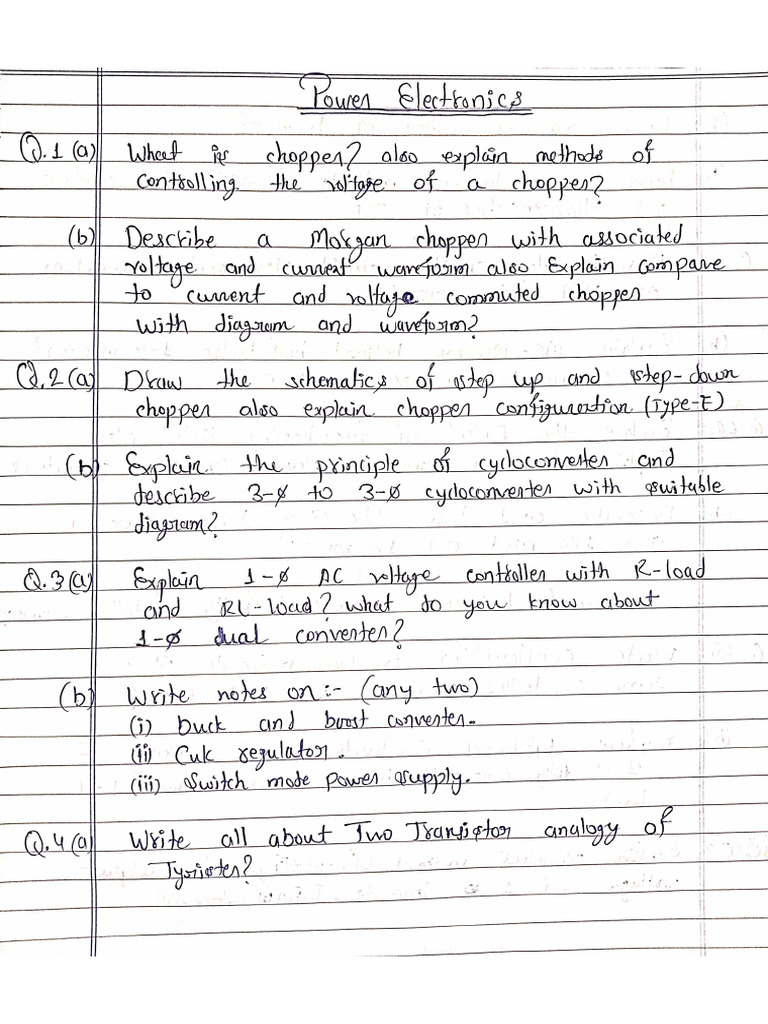 Power Electronics
Q.1 (a) What is chopper? also explain methods of
controlling the voltage of a chopper?
(b) Describe a Morgan chopper with associated
voltage and current waveform also Explain compare
to current and voltage commuted chopper
with diagram and waveform?
Q.2 (a) Draw the schematics of step up and step-down
chopper also explain chopper configuration (Type-E)
(b) Explain the principle of cycloconverter and
describe 3-ø to 3-ø cycloconverter with suitable
diagram?
Q.3 (a) Explain 1-ø AC voltage controller with R-load
and RL-load? what do you know about
1-ø dual converter?
(b) Write notes on:- (any two)
(i) buck and boost converter.
(ii) Cuk regulator.
(iii) Switch mode power supply.
Q.4 (a) Write all about Two Transistor analogy of
Tyrister?